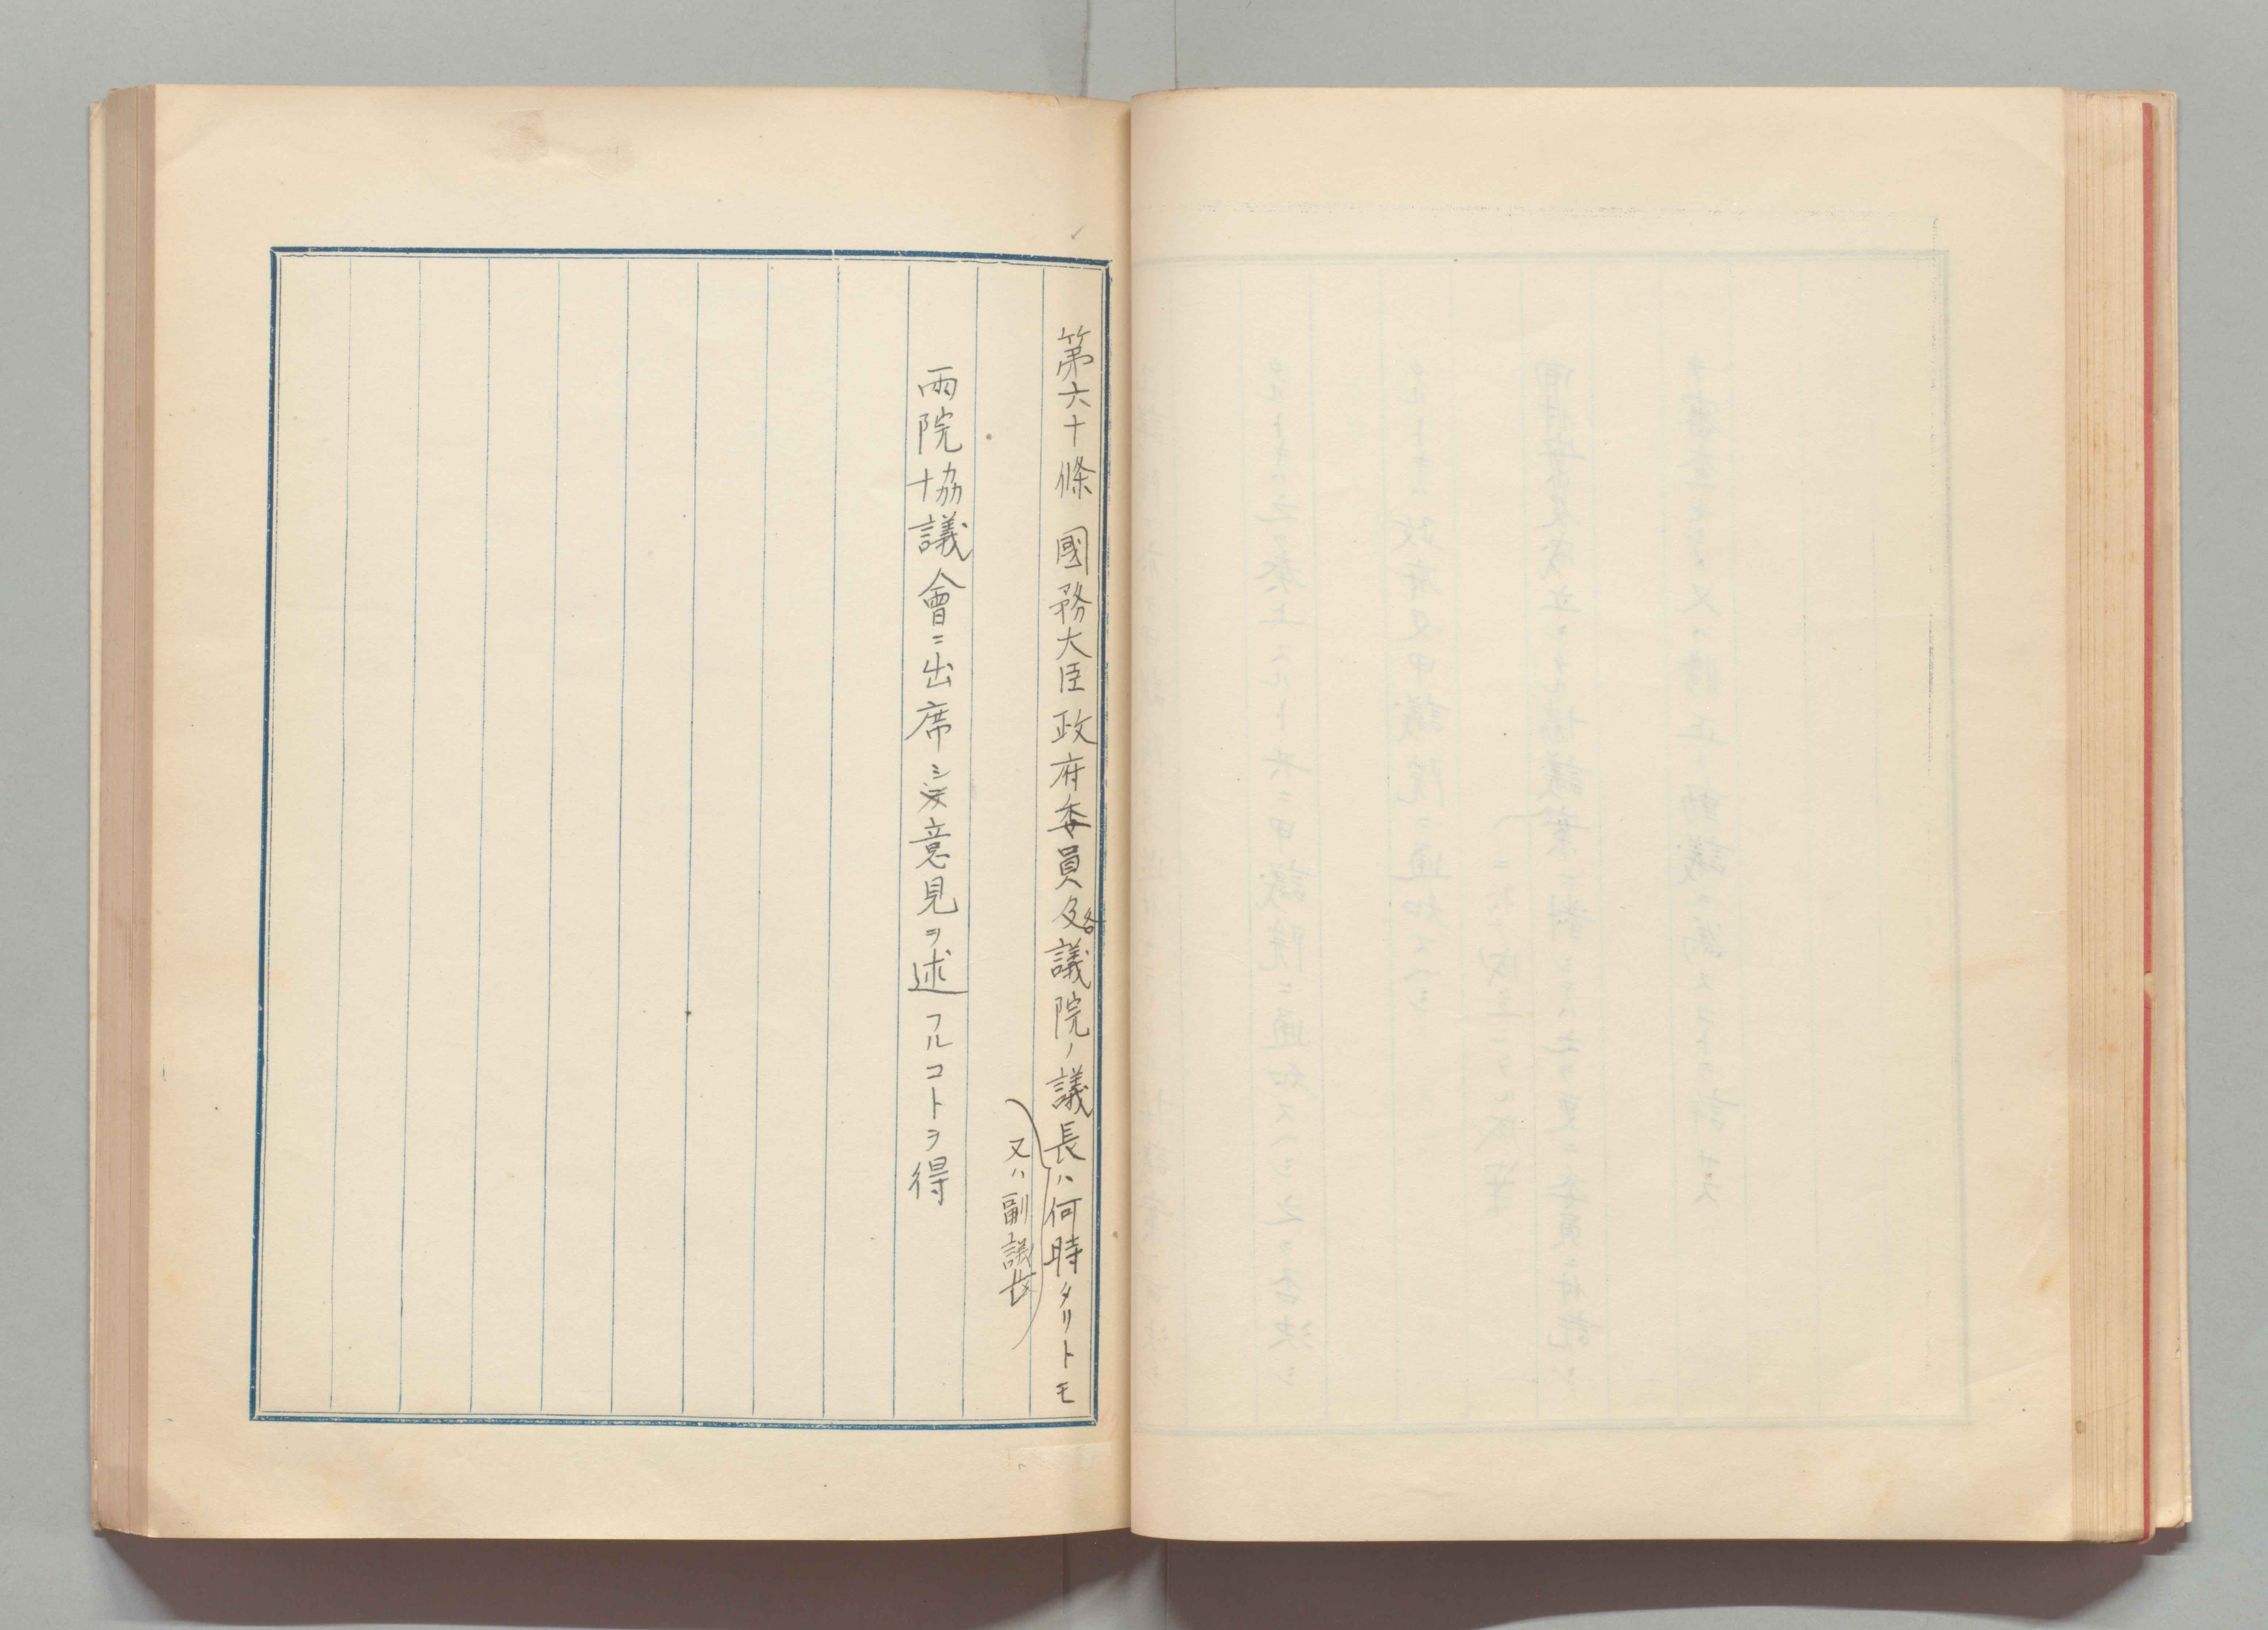 第六十條 國務大臣政府委員及各議院ノ議長ハ何時タリトモ
又ハ副議長
兩院協議會ニ出席シ意見ヲ述フルコトヲ得